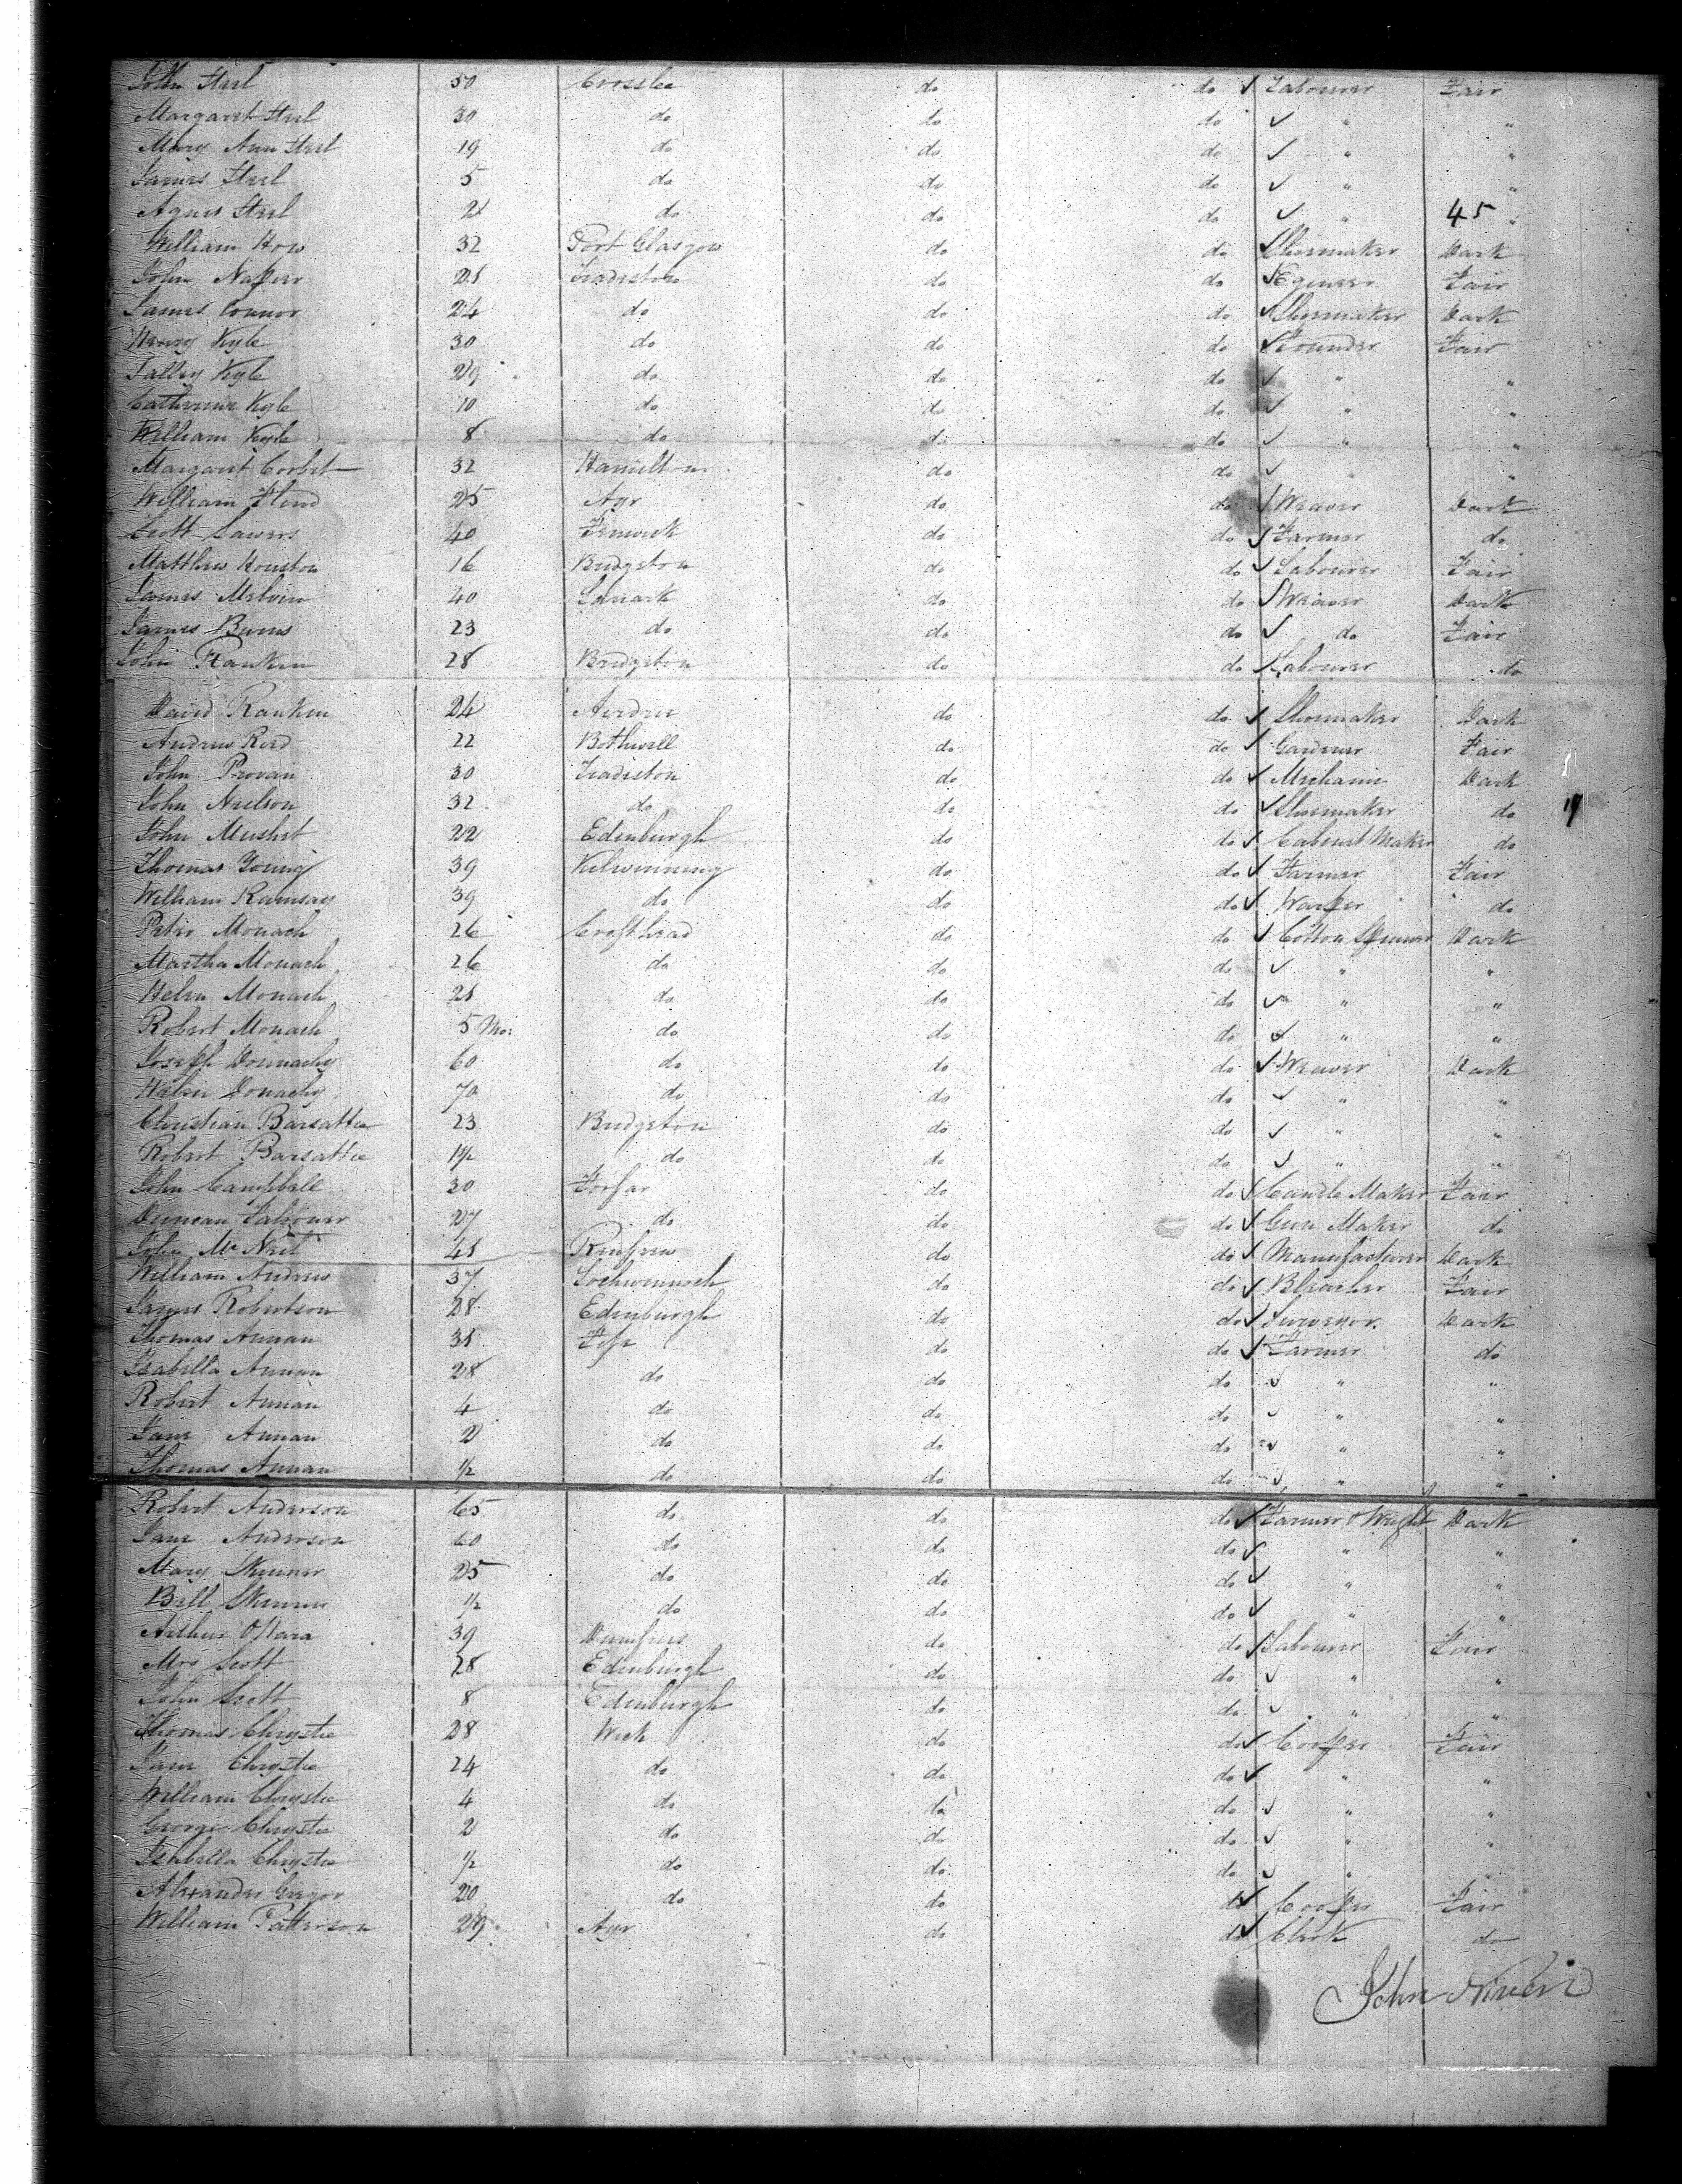 John Steel 50 Crosslee do do ✓ Labourer Fair
Margaret Steel 30 do do do ✓ " "
Mary Ann Steel 19 do do do ✓ " "
James Steel 5 do do do ✓ " "
Agnes Steel 2 do do do ✓ " 45 "
William How 32 Port Glasgow do do ✓ Shoemaker Dark
John Napier 21 Tradeston do do ✓ Egineer Fair
James Connor 24 do do do ✓ Shoemaker Dark
Henry Kyle 30 do do do ✓ Founder Fair
Kyle 29 do do do ✓ " "
Catherine Kyle 10 do do do ✓ " "
William Kyle 8 do do do ✓ " "
Margaret Corbet 32 Hamilton do do ✓ " "
William 25 Ayr do do ✓ Weaver Dark
Scott Lawers 40 Fenwick do do ✓ Farmer do
Matthew Houston 16 Bridgeton do do ✓ Labourer Fair
James Melvin 40 Lanark do do ✓ Weaver Dark
James Burns 23 do do do ✓ do Fair
John Rankin 28 Bridgeton do do ✓ Labourer do
David Rankin 24 Airdrie do do ✓ Shoemaker Dark
Andrew Reid 22 Bothwell do do ✓ Gardener Fair
John Provan 30 Tradeston do do ✓ Mechanic Dark
John Neilson 32 do do do ✓ Shoemaker do 19
John Mushet 22 Edinburgh do do ✓ Cabinet Maker do
Thomas Young 39 Kilwinning do do ✓ Farmer Fair
William Ramsay 39 do do do ✓ Warper do
Peter Monach 26 Crofthead do do ✓ Cotton Spinner Dark
Martha Monach 26 do do do ✓ " "
Helen Monach 21 do do do ✓ " "
Robert Monach 5 Mo: do do do ✓ " "
Joseph Donnachy 60 do do do ✓ Weaver Dark
Helen Donachy 70 do do do ✓ " "
Christian Barsattie 23 Bridgeton do do ✓ " "
Robert Barsattie 1½ do do do ✓ " "
John Campbell 30 Forfar do do ✓ Candle Maker Fair
Duncan Falconer 27 do do do ✓ Gun Maker do
John McNeil 41 Renfrew do do ✓ Manufacturer Dark
William Andrew 37 Lochwinnoch do do ✓ Bleacher Fair
James Robertson 28 Edinburgh do do ✓ Surveyor. Dark
Thomas Annan 31 Fife do do ✓ Farmer do
Isabella Annan 28 do do do ✓ " "
Robert Annan 4 do do do ✓ " "
Jane Annan 2 do do do ✓ " "
Thomas Annan ½ do do do ✓ " "
Robert Anderson 65 do do do ✓ Farmer & Wright Dark
Jane Anderson 60 do do do ✓ " "
Mary Skinner 25 do do do ✓ " "
Bell Skinner ½ do do do ✓ " "
Arthur O'Hara 39 Dumfries do do ✓ Labourer Fair
Mrs Scott 28 Edinburgh do do ✓ " "
John Scott 8 Edinburgh do do ✓ " "
Thomas Chrystie 28 Wick do do ✓ Cooper Fair
Jane Chrystie 24 do do do ✓ " "
William Chrystie 4 do do do ✓ " "
George Chrystie 2 do do do ✓ " "
Isabella Chrystie ½ do do do ✓ " "
Alexander Gregor 20 do do do ✓ Cooper Fair
William Patterson Ayr do do ✓ Clerk do
John Niven